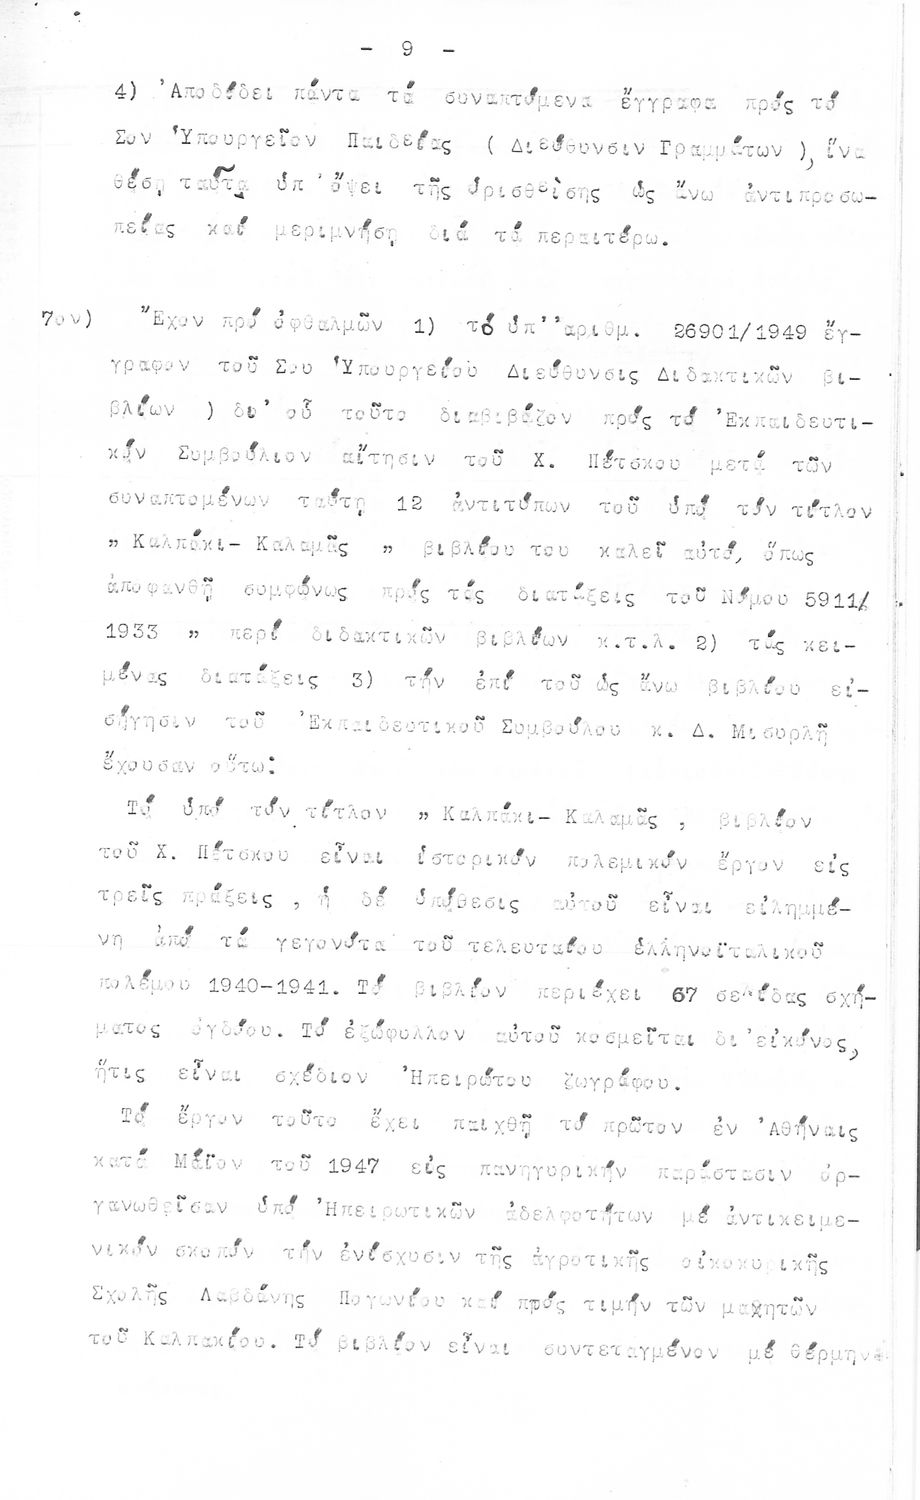 - 9 -
4) Ἀποδίδει πάντα τά συναπτόμενα ἔγγραφα πρός τό
Σον Ὑπουργεῖον Παιδείας ( Διεύθυνσιν Γραμμάτων ), ἵνα
θέσῃ ταῦτα ὑπ' ὄψει τῆς ὁρισθείσης ὡς ἄνω ἀντιπροσω-
πείας καί μεριμνήσῃ διά τά περαιτέρω.
7ον) Ἔχον πρό ὀφθαλμῶν 1) τό ὑπ' ἀριθμ. 26901/1949 ἔγ-
γραφον τοῦ Σου Ὑπουργείου Διεύθυνσις Διδακτικῶν βι-
βλίων ) δι' οὗ τοῦτο διαβιβάζον πρός τό Ἐκπαιδευτι-
κόν Συμβούλιον αἴτησιν τοῦ Χ. Πέτσκου μετά τῶν
συναπτομένων ταύτῃ 12 ἀντιτύπων τοῦ ὑπό τόν τίτλον
" Καλπάκι- Καλαμᾶς " βιβλίου του καλεῖ αὐτό, ὅπως
ἀποφανθῇ συμφώνως πρός τάς διατάξεις τοῦ Νόμου 5911/
1933 " περί διδακτικῶν βιβλίων κ.τ.λ. 2) τάς κει-
μένας διατάξεις 3) τήν ἐπί τοῦ ὡς ἄνω βιβλίου εἰ-
σήγησιν τοῦ Ἐκπαιδευτικοῦ Συμβούλου κ. Δ. Μισυρλῆ
ἔχουσαν οὕτω:
Τό ὑπό τόν τίτλον " Καλπάκι- Καλαμᾶς , βιβλίον
τοῦ Χ. Πέτσκου εἶναι ἱστορικόν πολεμικόν ἔργον εἰς
τρεῖς πράξεις , ἡ δέ ὑπόθεσις αὐτοῦ εἶναι εἰλημμέ-
νη ἀπό τά γεγονότα τοῦ τελευταίου ἑλληνοϊταλικοῦ
πολέμου 1940-1941. Τό βιβλίον περιέχει 67 σελίδας σχή-
ματος ὀγδόου. Τό ἐξώφυλλον αὐτοῦ κοσμεῖται δι' εἰκόνος,
ἥτις εἶναι σχέδιον Ἠπειρώτου ζωγράφου.
Τό ἔργον τοῦτο ἔχει παιχθῇ τό πρῶτον ἐν Ἀθήναις
κατά Μάϊον τοῦ 1947 εἰς πανηγυρικήν παράστασιν ὀρ-
γανωθεῖσαν ὑπό Ἠπειρωτικῶν ἀδελφοτήτων μέ ἀντικειμε-
νικόν σκοπόν τήν ἐνίσχυσιν τῆς ἀγροτικῆς οἰκοκυρικῆς
Σχολῆς Λαβδάνης Πογωνίου καί πρός τιμήν τῶν μαχητῶν
τοῦ Καλπακίου. Τό βιβλίον εἶναι συντεταγμένον μέ θέρμην